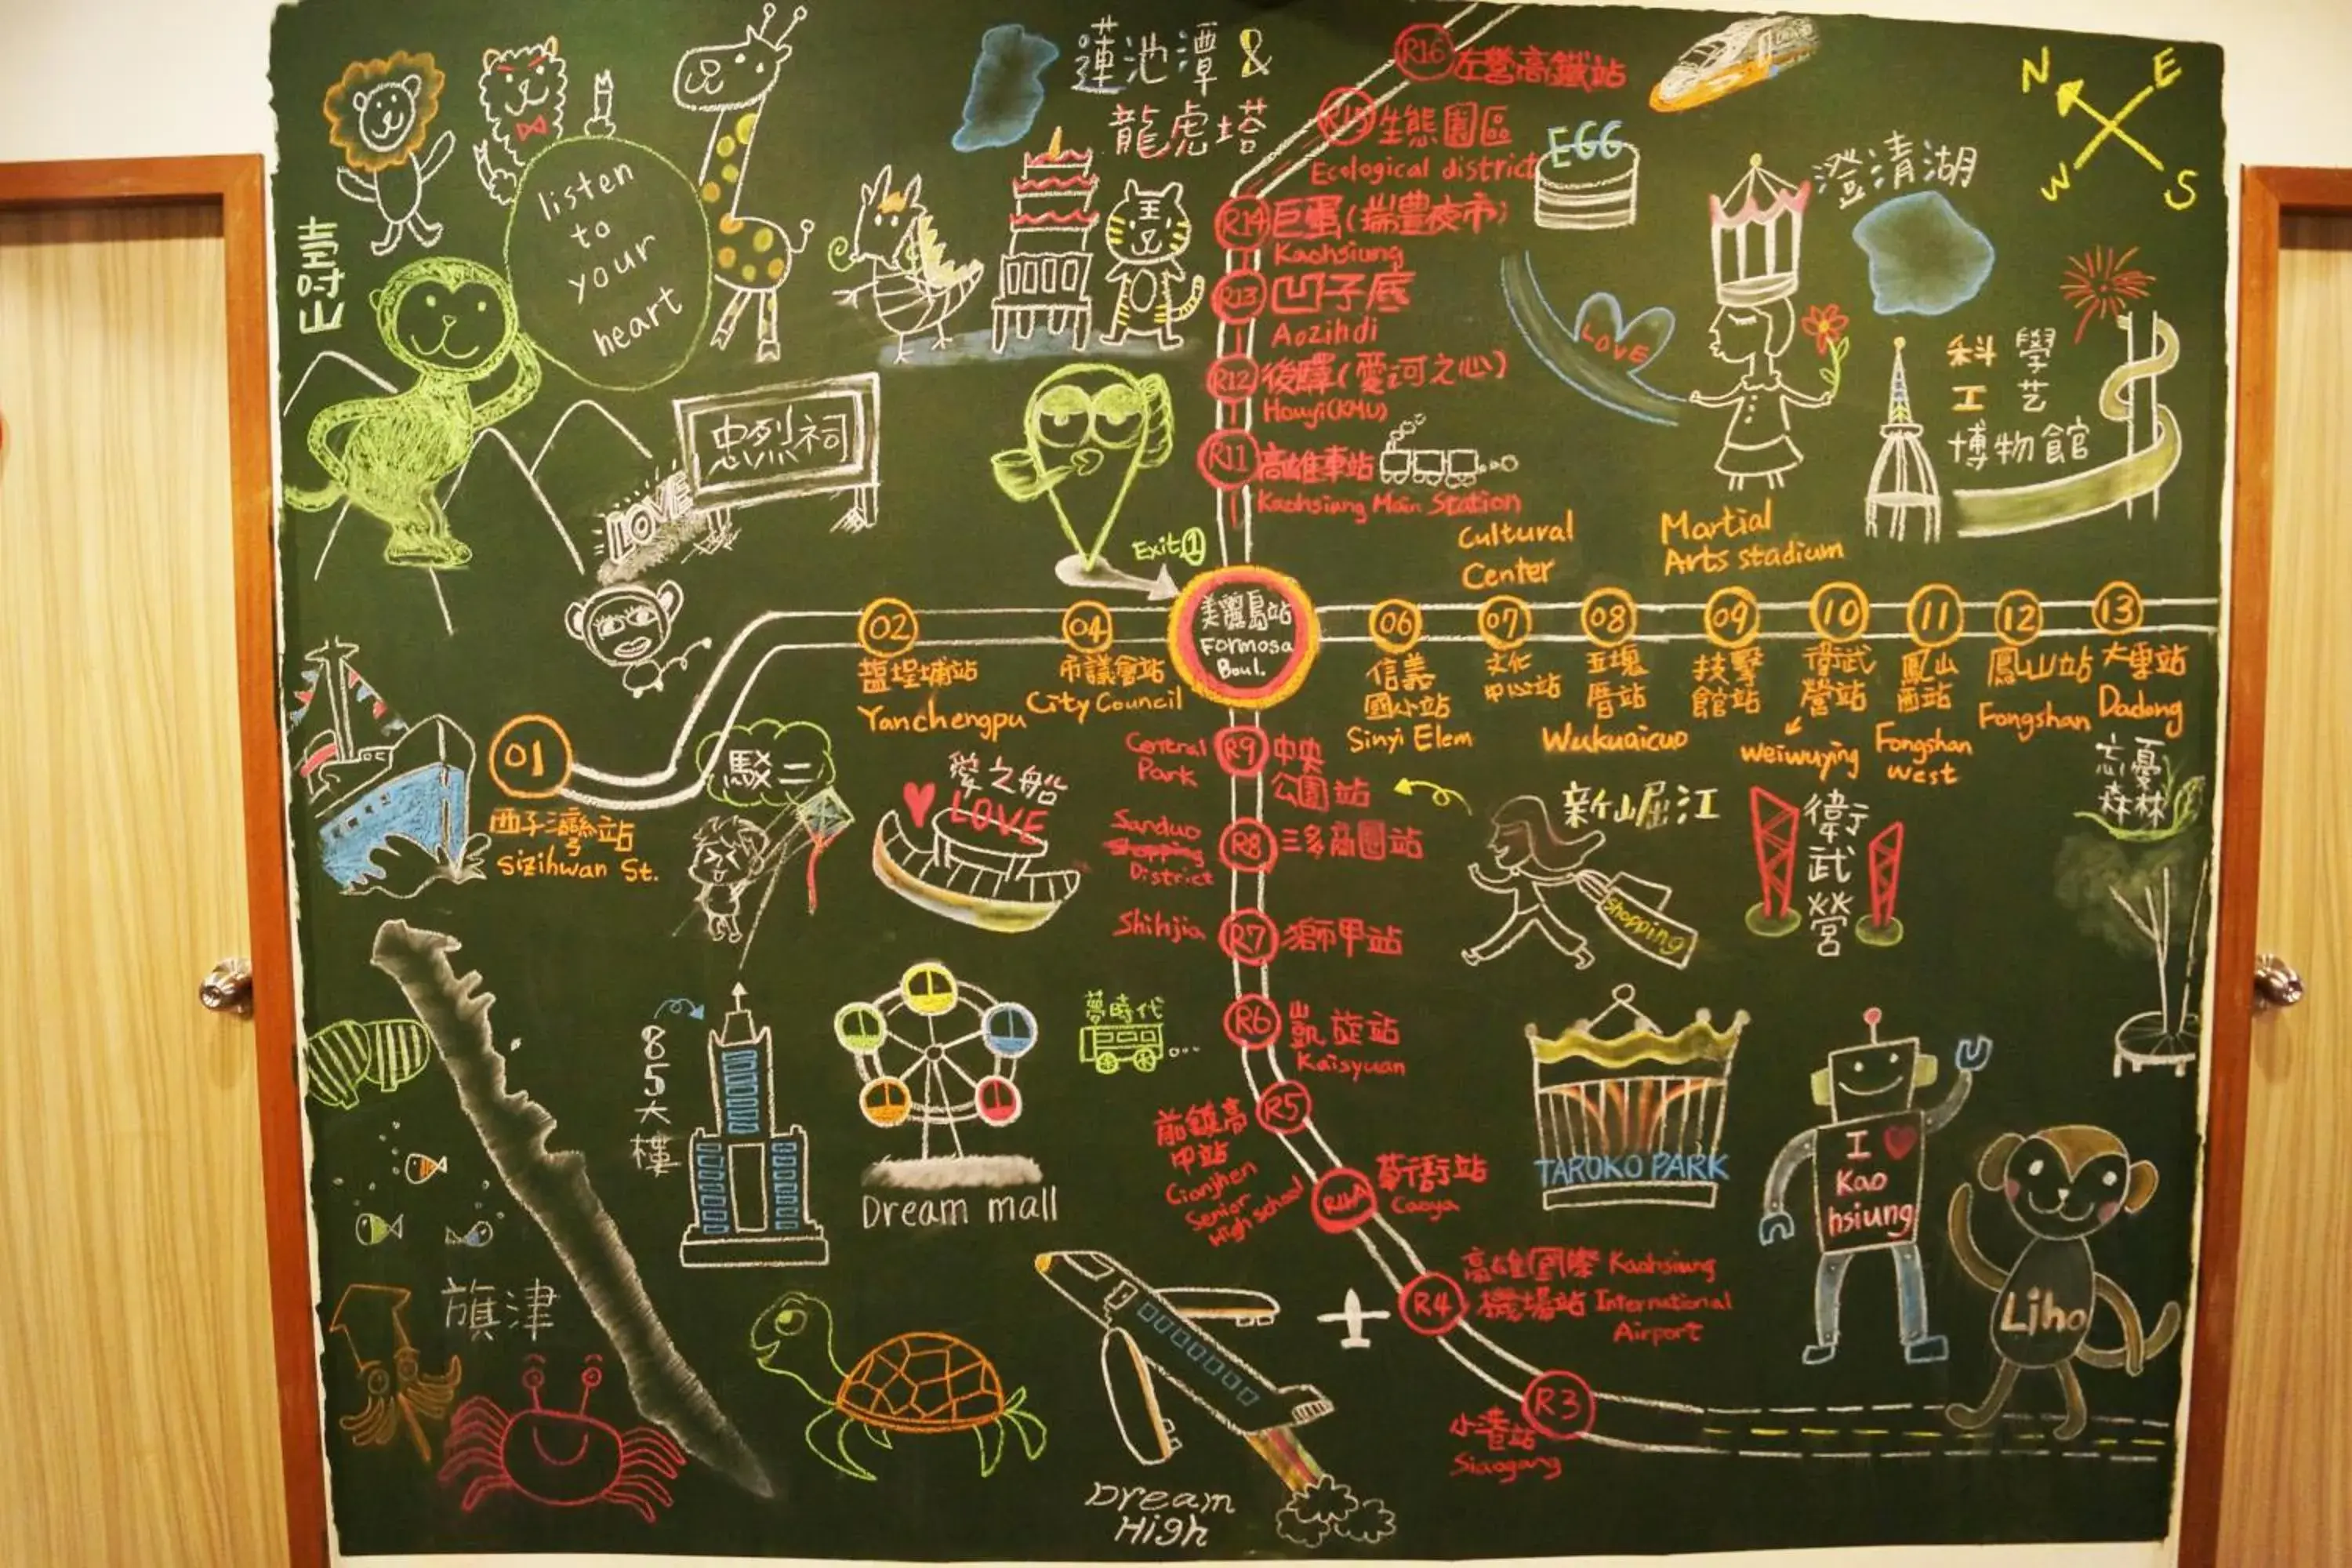 蓮池潭 &
龍虎塔
R16 左營高鐵站
R15 生態園區
Ecological district
EGG
N
E
W
S
澄清湖
listen
to
your
heart
壽山
R14 巨蛋(瑞豐夜市)
Kaohsiung
R13 凹子底
Aozihdi
R12 後驛(愛河之心)
Houyi(KMU)
R11 高雄車站
Kaohsiung Main Station
LOVE
科學
工艺
博物館
忠烈祠
LOVE
Exit①
Cultural
Center
Martial
Arts stadium
美麗島站
Formosa
Boul.
01
西子灣站
Sizihwan St.
02
鹽埕埔站
Yanchengpu
04
市議會站
City Council
06
信義
國小站
Sinyi Elem
07
文化
中心站
08
五塊
厝站
Wukuaicuo
09
技擊
館站
10
衛武
營站
Weiwuying
11
鳳山
西站
Fongshan
West
12
鳳山站
Fongshan
13
大東站
Dadong
駁二
愛之船
LOVE
Central
Park
R9 中央
公園站
Sanduo
Shopping
District
R8 三多商圈站
Shihjia
R7 獅甲站
新崛江
shopping
衛武營
忘憂
森林
85大樓
夢時代
Dream mall
R6 凱旋站
Kaisyuan
R5
前鎮高
中站
Cianjhen
Senior
High school
R4A 草衙站
Caoya
TAROKO PARK
I
Kao
hsiung
Liho
旗津
R4 高雄國際 Kaohsiung
機場站 International
Airport
R3
小港站
Siaogang
Dream
High